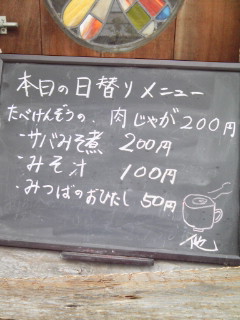 本日の日替りメニュー
たべけんぞうの、肉じゃが200円
・サバみそ煮 200円
・みそ汁 100円
・みつばのおひたし 50円
他